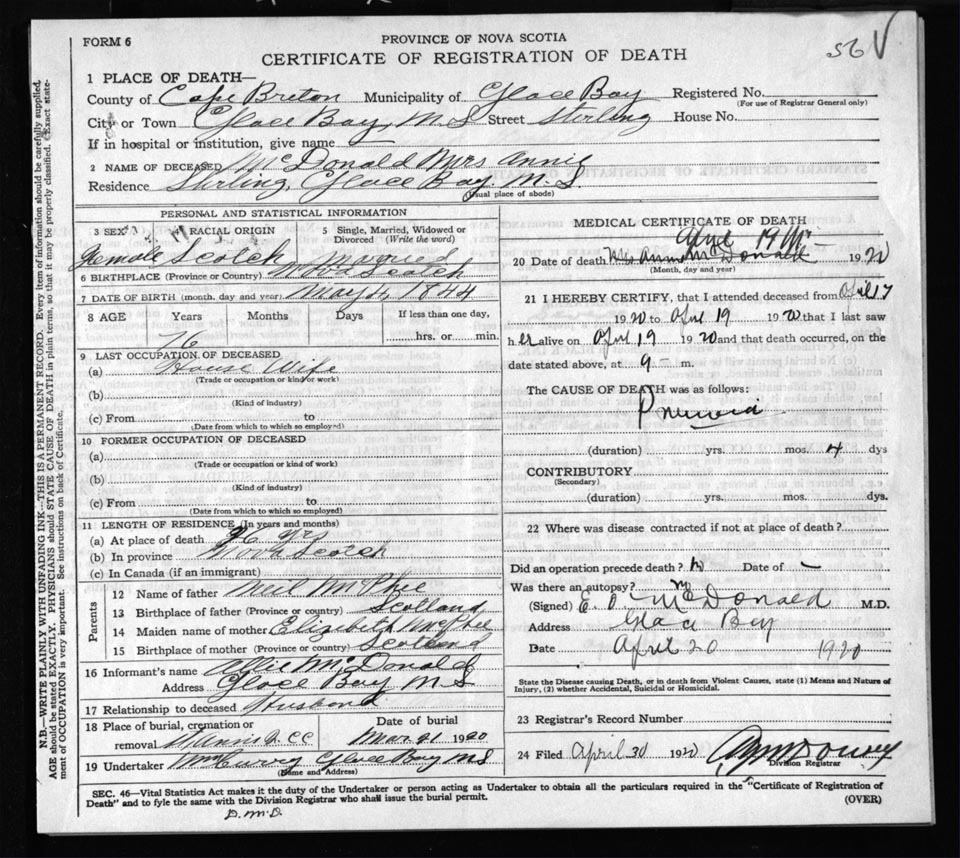 FORM 6
PROVINCE OF NOVA SCOTIA
CERTIFICATE OF REGISTRATION OF DEATH
56 V
N.B.—WRITE PLAINLY WITH UNFADING INK—THIS IS A PERMANENT RECORD. Every item of information should be carefully supplied.
AGE should be stated EXACTLY. PHYSICIANS should STATE CAUSE OF DEATH in plain terms, so that it may be properly classified. Exact state-
ment of OCCUPATION is very important. See instructions on back of Certificate.
1 PLACE OF DEATH—
County of Cape Breton Municipality of Glace Bay Registered No.
(For use of Registrar General only)
City or Town Glace Bay, N.S Street Sterling House No.
If in hospital or institution, give name
2 NAME OF DECEASED McDonald Mrs Annie
Residence Sterling, Glace Bay. N.S.
(Usual place of abode)
PERSONAL AND STATISTICAL INFORMATION
3 SEX 4 RACIAL ORIGIN 5 Single, Married, Widowed or Divorced (Write the word)
Female Scotch Married
6 BIRTHPLACE (Province or Country) Nova Scotch
7 DATE OF BIRTH (month, day and year) May 4, 1844
8 AGE Years Months Days If less than one day,
76 hrs. or min.
9 LAST OCCUPATION OF DECEASED
(a) House Wife
(Trade or occupation or kind of work)
(b)
(Kind of industry)
(c) From to
(Date from which to which so employed)
10 FORMER OCCUPATION OF DECEASED
(a)
(Trade or occupation or kind of work)
(b)
(Kind of industry)
(c) From to
(Date from which to which so employed)
11 LENGTH OF RESIDENCE (In years and months)
(a) At place of death yrs
(b) In province Nova Scotch
(c) In Canada (if an immigrant)
Parents
12 Name of father Neil McPhee
13 Birthplace of father (Province or country) Scotland
14 Maiden name of mother Elizabeth McPhee
15 Birthplace of mother (Province or country) Scotland
16 Informant's name Allie McDonald
Address Glace Bay N S
17 Relationship to deceased Husband
18 Place of burial, cremation or removal Date of burial
C C Mar 21 1920
19 Undertaker McCurry Glace Bay NS
(Name and Address)
MEDICAL CERTIFICATE OF DEATH
April 19th—
20 Date of death Mrs McDonald 1920
(Month, day and year)
21 I HEREBY CERTIFY, that I attended deceased from April 17
1920 to April 19 1920 that I last saw
her alive on April 19 1920 and that death occurred, on the
date stated above, at 9 — m.
The CAUSE OF DEATH was as follows:
(duration) yrs. mos. 4 dys
CONTRIBUTORY
(Secondary)
(duration) yrs. mos. dys.
22 Where was disease contracted if not at place of death?
Did an operation precede death? No Date of —
Was there an autopsy? No
(Signed) E. O. McDonald M.D.
Address Glace Bay
Date April 20 1920
State the Disease causing Death, or in death from Violent Causes, state (1) Means and Nature of
Injury, (2) whether Accidental, Suicidal or Homicidal.
23 Registrar's Record Number
24 Filed April 30 1920
Division Registrar
SEC. 46—Vital Statistics Act makes it the duty of the Undertaker or person acting as Undertaker to obtain all the particulars required in the "Certificate of Registration of
Death" and to fyle the same with the Division Registrar who shall issue the burial permit.
(OVER)
D.M.D.